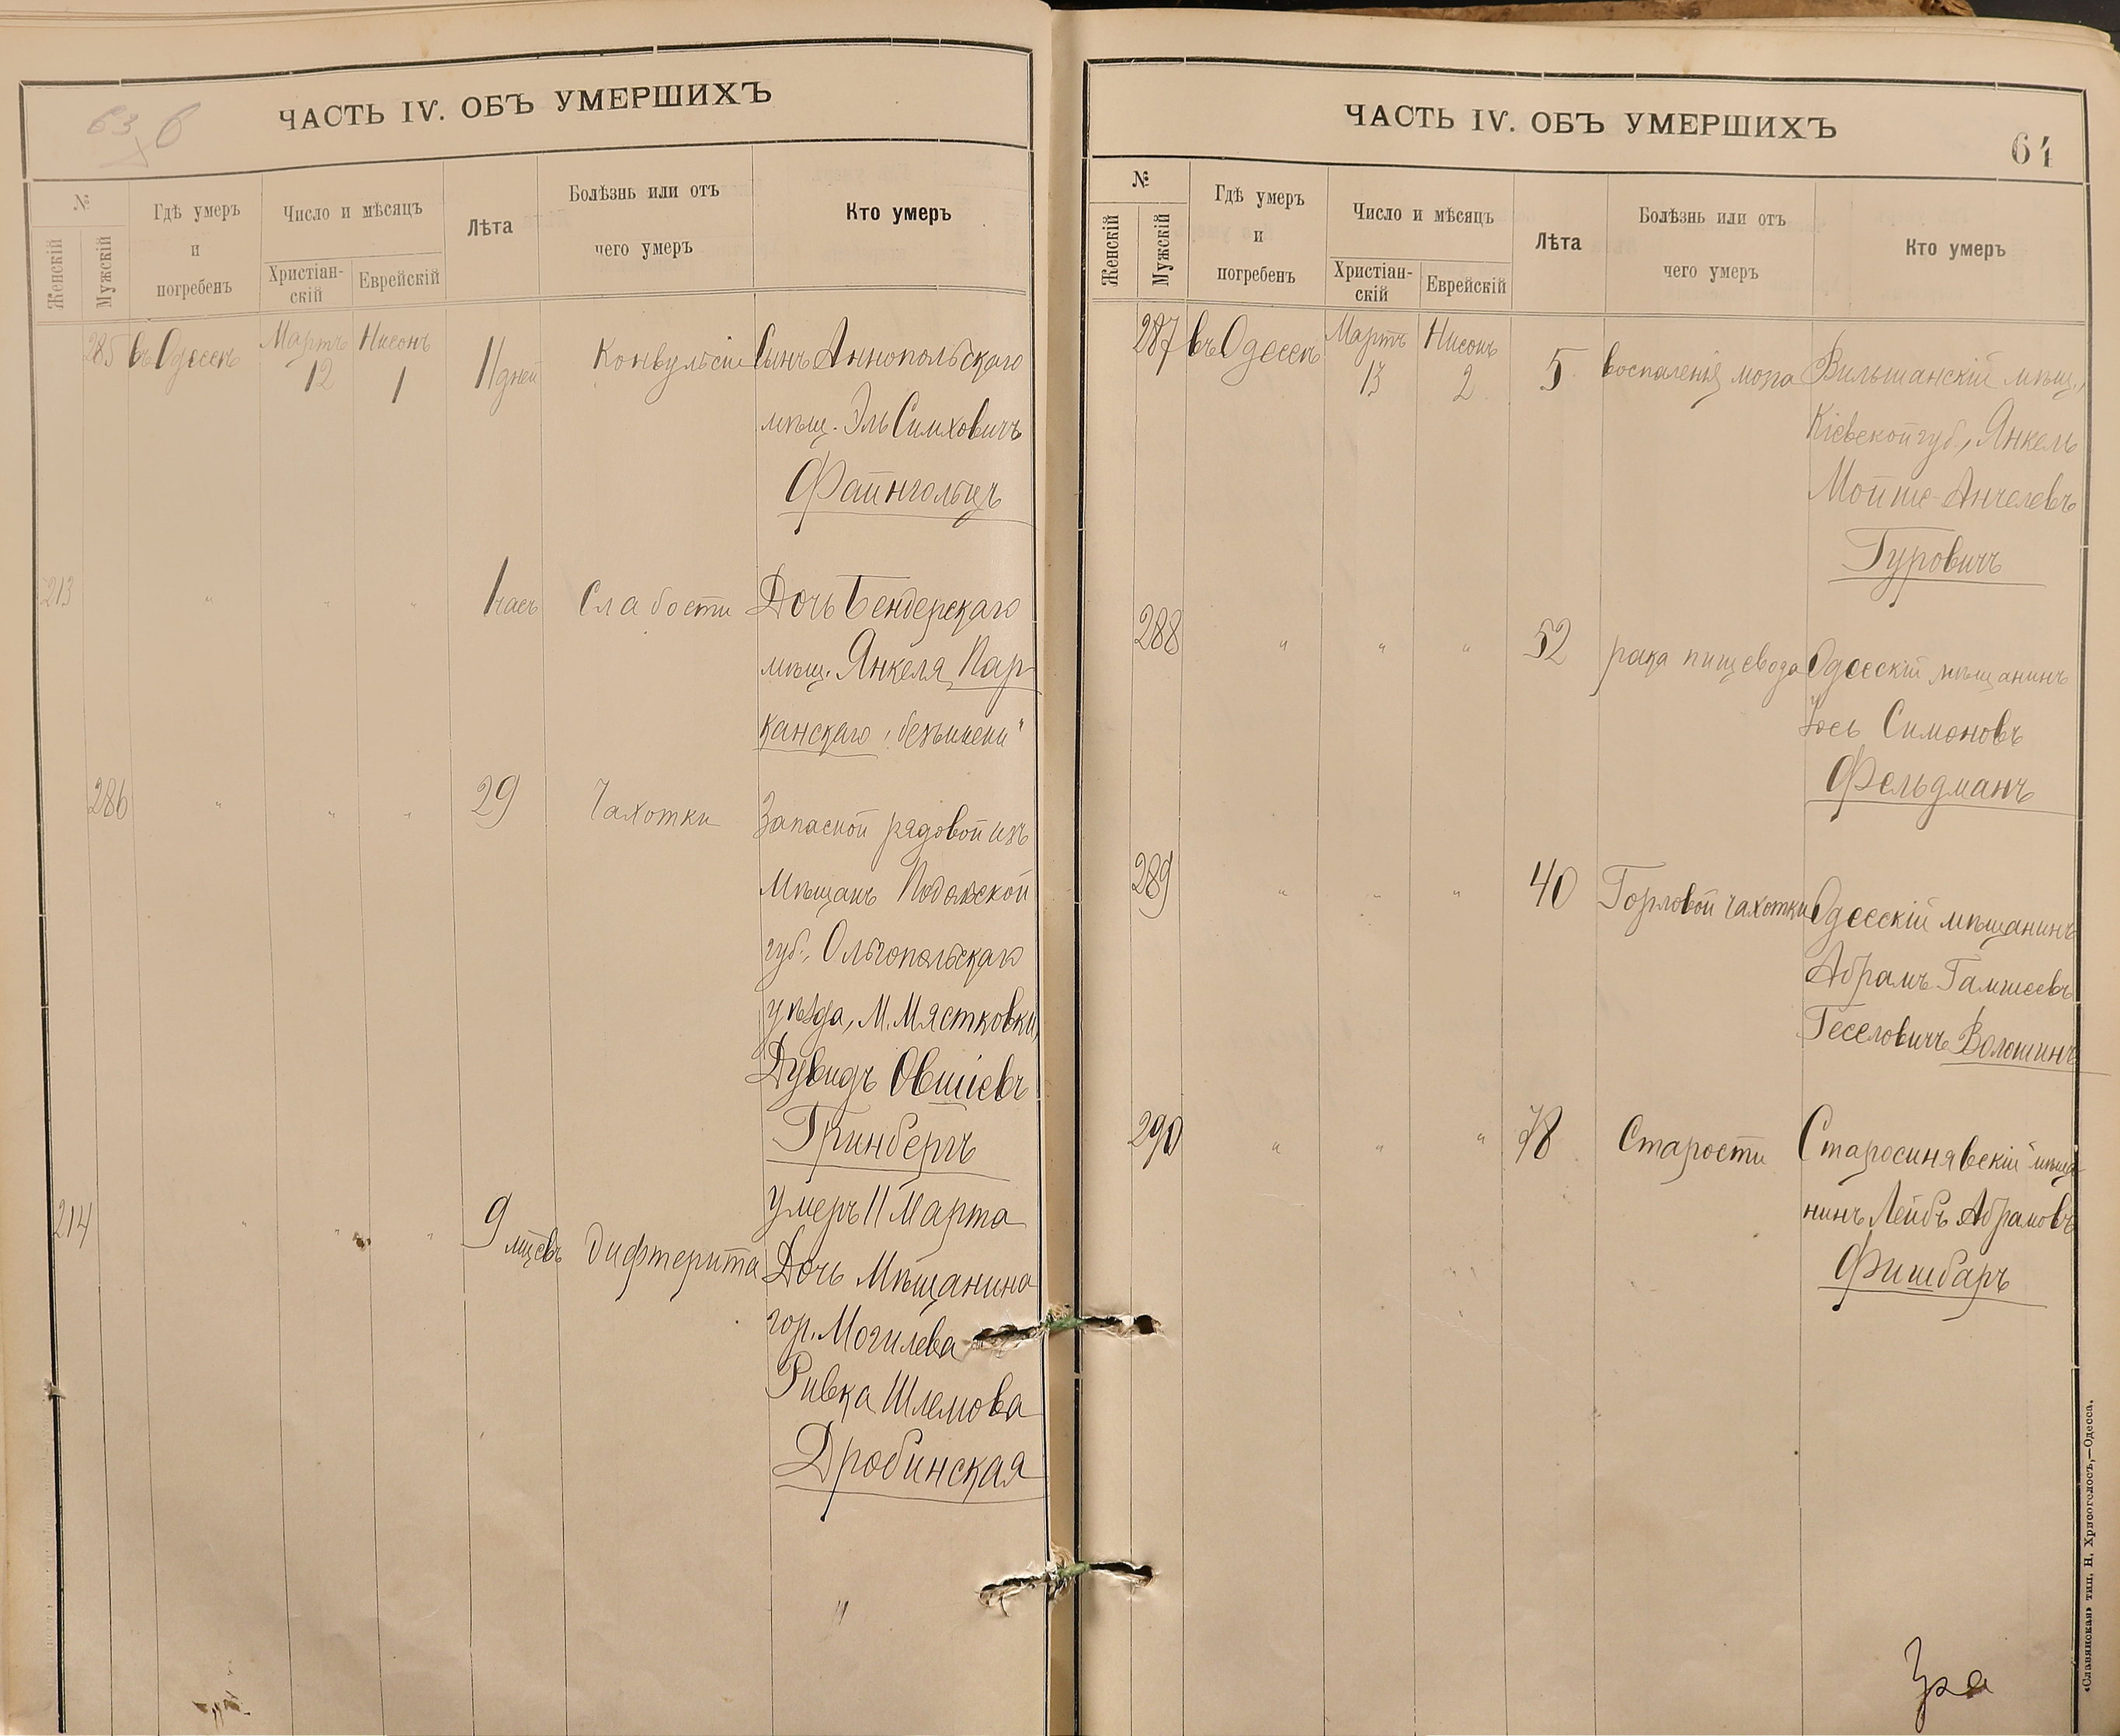 ЧАСТЬ IV. ОБЪ УМЕРШИХЪ
№
Женскій
Мужскій
Гдѣ умеръ
и
погребенъ
Число и мѣсяцъ
Христіан-
скій
Еврейскій
Лѣта
Болѣзнь или отъ
чего умеръ
Кто умеръ
285 въ Одессѣ Мартъ 12 Нисонъ 1 11 дней Конвульсіи Сынъ Аннопольскаго
мѣщ. Эль Симховичъ
Файнгольцъ
213 " " " 1 часъ Слабости Дочь Бендерскаго
мѣщ. Янкеля Пар
канскаго "безъимени"
286 " " " 29 Чахотки Запасной рядовой изъ
Мѣщанъ Подольской
губ., Ольгопольскаго
уѣзда, М. Мястковки,
Дувидъ Овшіевъ
Гринбергъ
умеръ 11 Марта
214 " " " 9 мцевъ Дифтерита Дочь Мѣщанина
гор. Могилева
Ривка Шлемова
Дробинская
"
ЧАСТЬ IV. ОБЪ УМЕРШИХЪ
64
№
Женскій
Мужскій
Гдѣ умеръ
и
погребенъ
Число и мѣсяцъ
Христіан-
скій
Еврейскій
Лѣта
Болѣзнь или отъ
чего умеръ
Кто умеръ
287 въ Одессѣ Мартъ 13 Нисонъ 2 5 воспаленія мозга Вильшанскій мѣщ.,
Кіевской губ., Янкель
Мойше-Анчелевъ
Гуровичъ
288 " " " 52 рака пищевода Одесскій мѣщанинъ
Іось Симоновъ
Фельдманъ
289 " " " 40 Горловой чахотки Одесскій мѣщанинъ
Абрамъ Гамшеевъ
Геселовичъ Волошинъ
290 " " " 78 Старости Старосинявскій мѣща
нинъ Лейбъ Абрамовъ
Фишбаръ
«Славянская» тип. Н. Хрисогелосъ,—Одесса.